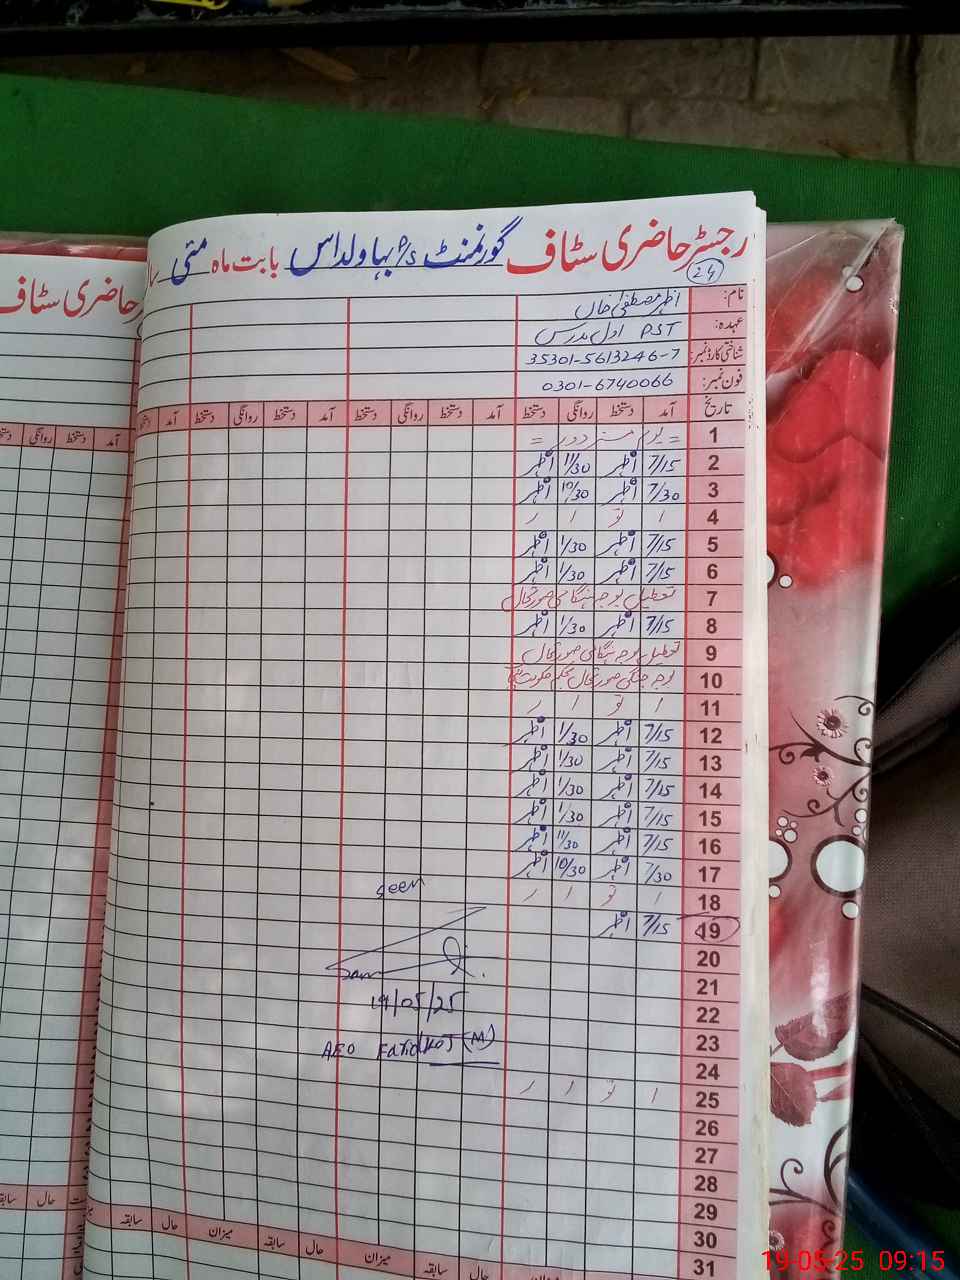 رجسٹر حاضری سٹاف گورنمنٹ P/S بہاولداس بابت ماہ مئی
24
نام: اظہر مصطفیٰ خاں
عہدہ: PST اول مدرس
شناختی کارڈ نمبر: 35301-5613246-7
فون نمبر: 0301-6740066
تاریخ آمد دستخط روانگی دستخط آمد دستخط روانگی دستخط آمد دستخط روانگی دستخط آمد
1 = یوم مزدور =
2 7/15 اظہر 11/30 اظہر
3 7/30 اظہر 10/30 اظہر
4 ا تو ا ر
5 7/15 اظہر 1/30 اظہر
6 7/15 اظہر 1/30 اظہر
7 تعطیل بوجہ ہنگامی صورتحال
8 7/15 اظہر 1/30 اظہر
9 تعطیل بوجہ ہنگامی صورتحال
10 بوجہ جنگی صورتحال بحکم حکومت
11 ا تو ا ر
12 7/15 اظہر 1/30 اظہر
13 7/15 اظہر 1/30 اظہر
14 7/15 اظہر 1/30 اظہر
15 7/15 اظہر 1/30 اظہر
16 7/15 اظہر 11/30 اظہر
17 7/30 اظہر 10/30 اظہر
18 ا تو ا ر
19 7/15 اظہر
20
21
22
23
24
25 ا تو ا ر
26
27
28
29
30
31
seen
19/05/25
AEO Faridkot (M)
میزان حال سابقہ میزان حال سابقہ میزان حال سابقہ
حاضری سٹاف
آمد دستخط روانگی
حال سابقہ
19-05-25 09:15